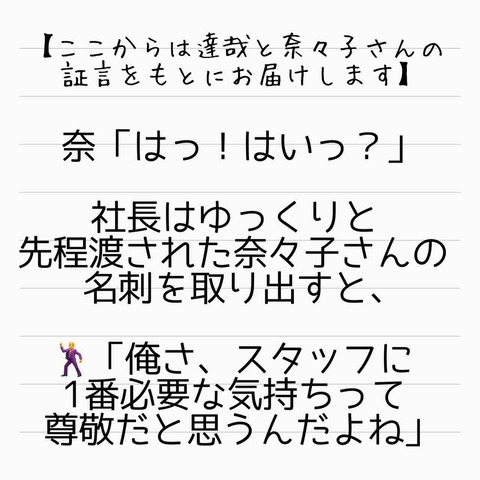 【ここからは達哉と奈々子さんの
証言をもとにお届けします】
奈「はっ！はいっ？」
社長はゆっくりと
先程渡された奈々子さんの
名刺を取り出すと、
🕺「俺さ、スタッフに
1番必要な気持ちって
尊敬だと思うんだよね」